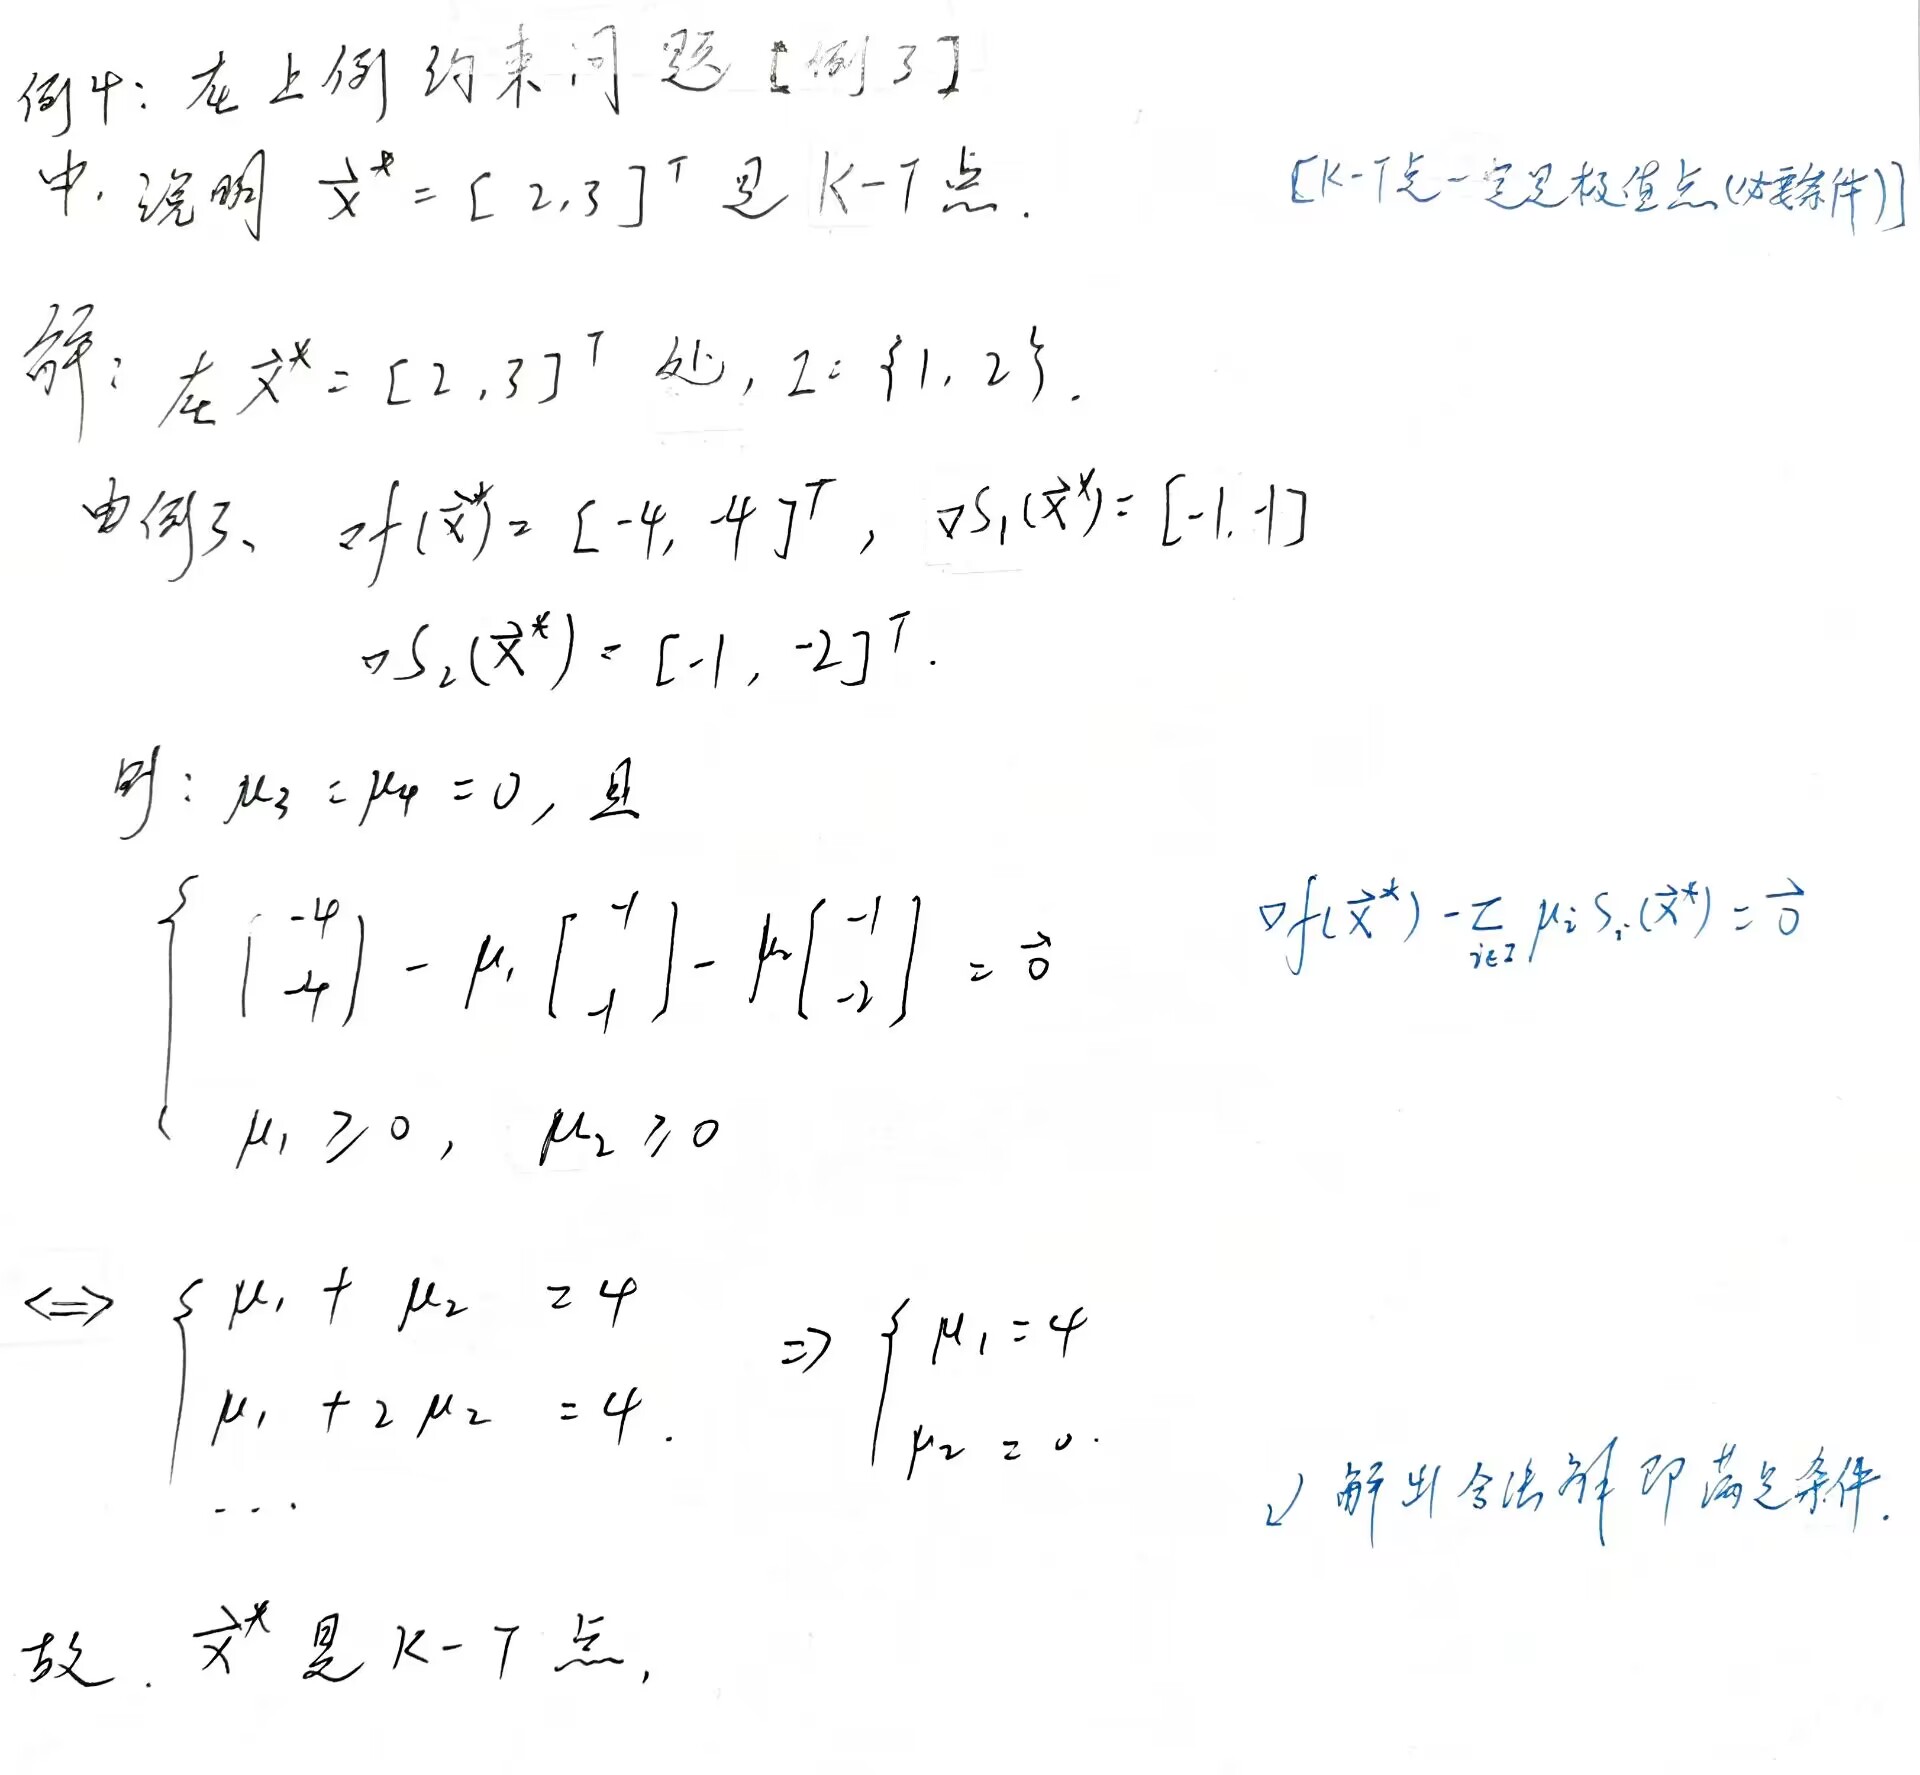 例4: 在上例约束问题[例3]
中, 说明 x⃗* = [2,3]ᵀ 是 K-T点.
[K-T点一定是极值点(必要条件)]
解: 在 x⃗* = [2,3]ᵀ 处, I = {1, 2}.
由例3、 ∇f(x⃗*) = [-4, -4]ᵀ, ∇S₁(x⃗*) = [-1,-1]
∇S₂(x⃗*) = [-1, -2]ᵀ.
则: μ₃ = μ₄ = 0, 且
{ [-4 -4] - μ₁ [-1 -1] - μ₂ [-1 -2] = 0⃗
∇f(x⃗*) - Σ_{i∈I} μᵢ Sᵢ(x⃗*) = 0⃗
μ₁ ≥ 0, μ₂ ≥ 0
<=> { μ₁ + μ₂ = 4
μ₁ + 2μ₂ = 4.
...
=> { μ₁ = 4
μ₂ = 0.
解出合法解即满足条件.
故. x⃗* 是 K-T 点,